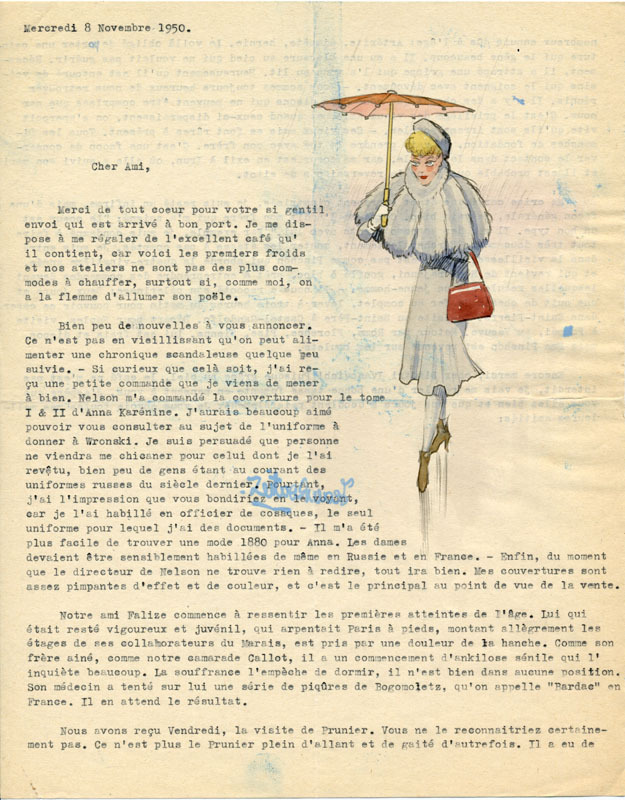 Mercredi 8 Novembre 1950.
Cher Ami,
Merci de tout coeur pour votre si gentil
envoi qui est arrivé à bon port. Je me dis-
pose à me régaler de l'excellent café qu'
il contient, car voici les premiers froids
et nos ateliers ne sont pas des plus com-
modes à chauffer, surtout si, comme moi, on
a la flemme d'allumer son poële.
Bien peu de nouvelles à vous annoncer.
Ce n'est pas en vieillissant qu'on peut ali-
menter une chronique scandaleuse quelque peu
suivie. - Si curieux que celà soit, j'ai re-
çu une petite commande que je viens de mener
à bien. Nelson m'a commandé la couverture pour le tome
I & II d'Anna Karénine. J'aurais beaucoup aimé
pouvoir vous consulter au sujet de l'uniforme à
donner à Wronski. Je suis persuadé que personne
ne viendra me chicaner pour celui dont je l'ai
revêtu, bien peu de gens étant au courant des
uniformes russes du siècle dernier. Pourtant,
j'ai l'impression que vous bondiriez en le voyant,
car je l'ai habillé en officier de cosaques, le seul
uniforme pour lequel j'ai des documents. - Il m'a été
plus facile de trouver une mode 1880 pour Anna. Les dames
devaient être sensiblement habillées de même en Russie et en France. - Enfin, du moment
que le directeur de Nelson ne trouve rien à redire, tout ira bien. Mes couvertures sont
assez pimpantes d'effet et de couleur, et c'est le principal au point de vue de la vente.
Notre ami Falize commence à ressentir les premières atteintes de l'âge. Lui qui
était resté vigoureux et juvénil, qui arpentait Paris à pieds, montant allègrement les
étages de ses collaborateurs du Marais, est pris par une douleur de la hanche. Comme son
frère ainé, comme notre camarade Callot, il a un commencement d'ankilose sénile qui l'
inquiète beaucoup. La souffrance l'empêche de dormir, il n'est bien dans aucune position.
Son médecin a tenté sur lui une série de piqûres de Bogomoletz, qu'on appelle "Bardac" en
France. Il en attend le résultat.
Nous avons reçu Vendredi, la visite de Prunier. Vous ne le reconnaitriez certaine-
ment pas. Ce n'est plus le Prunier plein d'allant et de gaité d'autrefois. Il a eu de